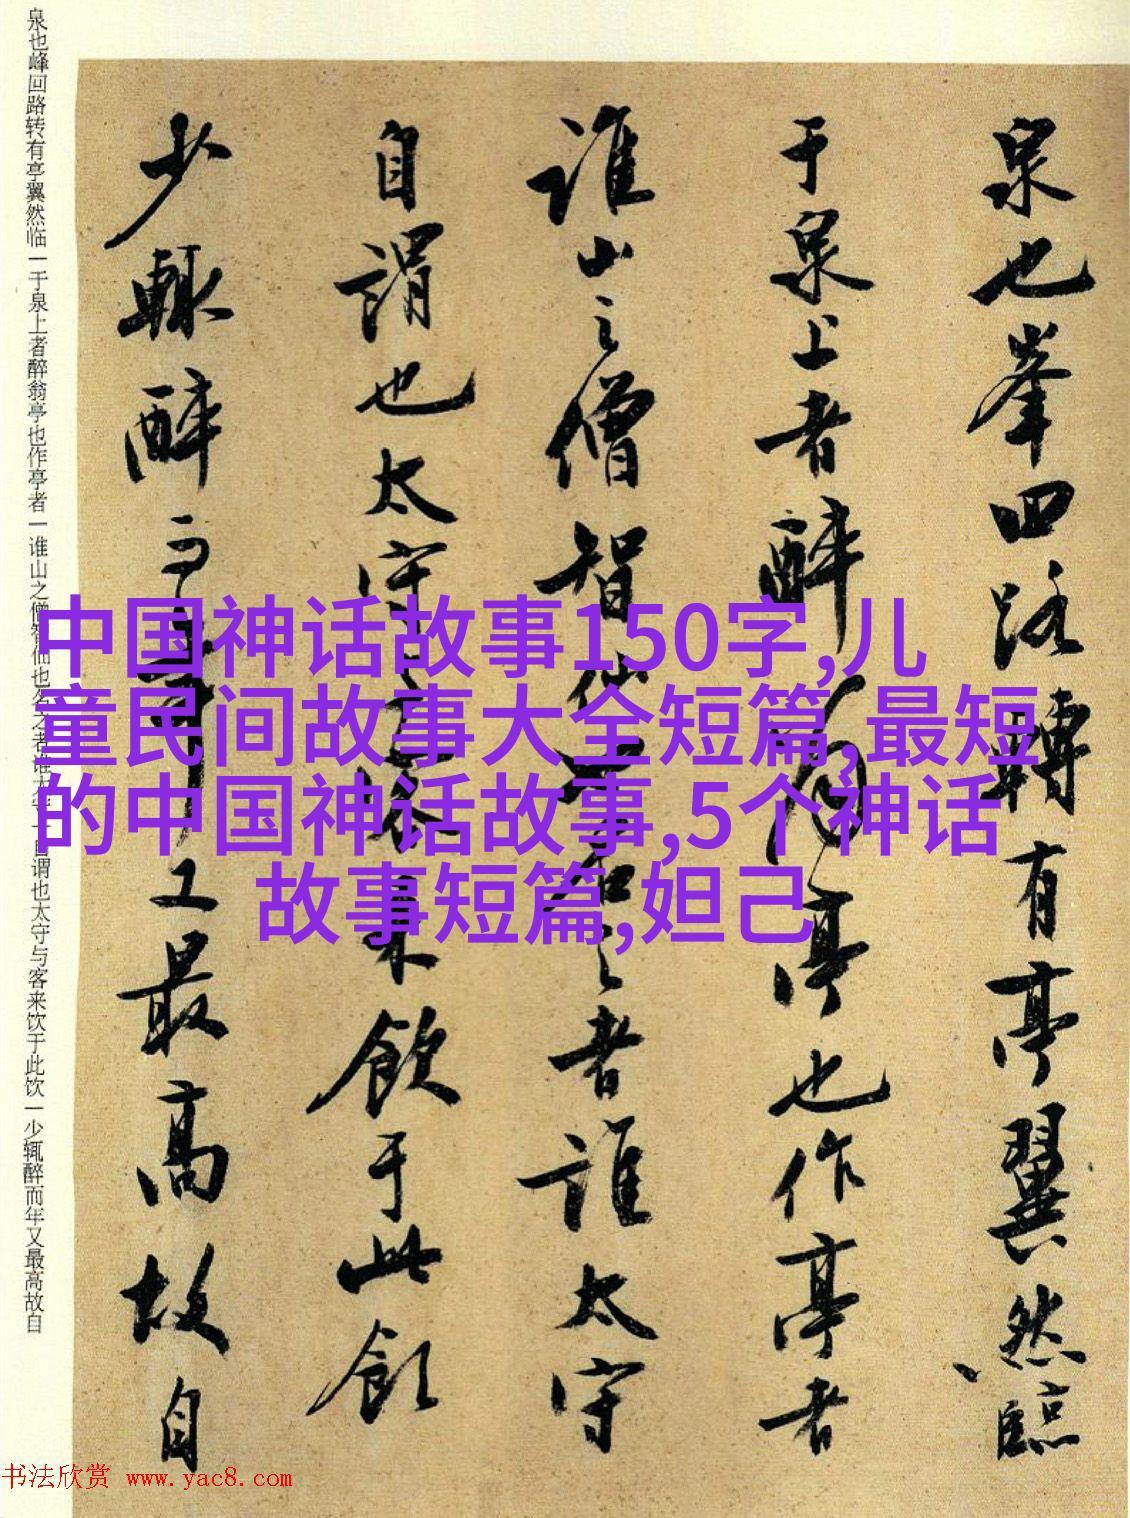 中国神话故事150字,儿
童民间故事大全短篇,最短
的中国神话故事,5个神话
故事短篇,妲己
泉也峯回路轉有亭翼然臨
于泉上者醉翁亭也作亭者
誰山之僧智仙也名之者誰太守
自謂也太守与客来飲于此飲
少輒醉而年又最高故自
泉也峰回路转有亭翼然临一于泉上者醉翁亭也作亭者一谁山之僧智仙也名之者谁太守一自谓也太守与客来饮于此饮一少辄醉而年又最高故自
书法欣赏 www.yac8.com